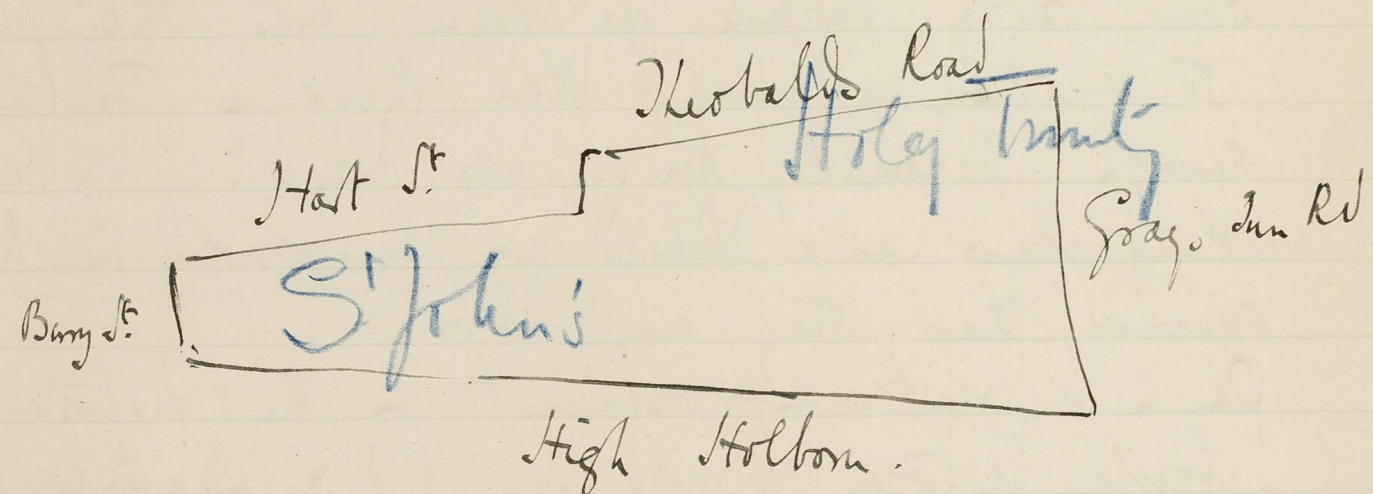 Theobalds Road
Holy Trinity
Hart St.
Grays Inn Rd
St John's
Bury St.
High Holborn.